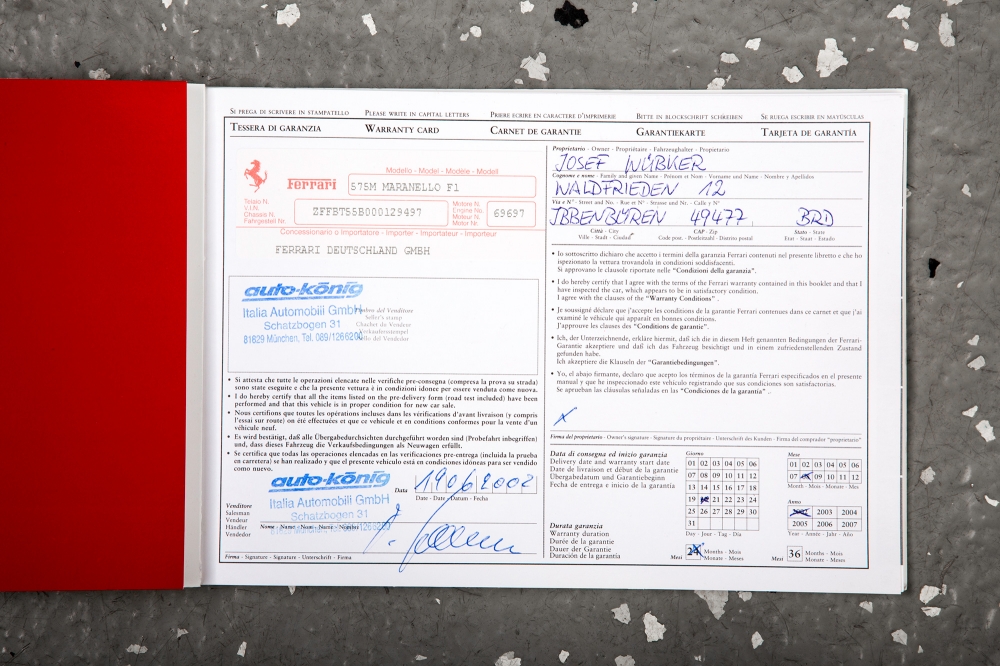 SI PREGA DI SCRIVERE IN STAMPATELLO PLEASE WRITE IN CAPITAL LETTERS PRIERE ECRIRE EN CARACTERE D'IMPRIMERIE BITTE IN BLOCKSCHRIFT SCHREIBEN SE RUEGA ESCRIBIR EN MAYÚSCULAS
TESSERA DI GARANZIA WARRANTY CARD CARNET DE GARANTIE GARANTIEKARTE TARJETA DE GARANTÍA
Modello - Model - Modèle - Modell
Ferrari 575M MARANELLO F1
Telaio N.
V.I.N.
Chassis N.
Fahrgestell Nr.
ZFFBT55B000129497
Motore N.
Engine No.
Moteur N.
Motor Nr.
69697
Concessionario o Importatore - Importer - Importateur - Importeur
FERRARI DEUTSCHLAND GMBH
auto-könig
Italia Automobili GmbH
Schatzbogen 31
81829 München, Tel. 089/1266200
Timbro del Venditore
Seller's stamp
Cachet du Vendeur
Verkäuferstempel
Sello del Vendedor
• Si attesta che tutte le operazioni elencate nelle verifiche pre-consegna (compresa la prova su strada)
sono state eseguite e che la presente vettura è in condizioni idonee per essere venduta come nuova.
• I do hereby certify that all the items listed on the pre-delivery form (road test included) have been
performed and that this vehicle is in proper condition for new car sale.
• Nous certifions que toutes les opérations incluses dans les vérifications d'avant livraison (y compris
l'essai sur route) on été effectuées et que ce vehicule et en conditions conformes pour la vente d'un
véhicule neuf.
• Es wird bestätigt, daß alle Übergabedurchsichten durchgeführt worden sind (Probefahrt inbegriffen)
und, dass dieses Fahrzeug die Verkaufsbedingungen als Neuwagen erfüllt.
• Se certifica que todas las operaciones elencadas en las verificaciones pre-entrega (incluida la prueba
en carretera) se han realizado y que el presente vehículo está en condiciones idoneas para ser vendido
como nuevo.
auto-könig
Italia Automobili GmbH
Schatzbogen 31
Data 19062002
Date - Date - Datum - Fecha
Venditore
Salesman
Vendeur
Händler
Vendedor
Nome - Name - Nom - Name - Nombre
Firma - Signature - Signature - Unterschrift - Firma
Proprietario - Owner - Propriétaire - Fahrzeughalter - Propietario
JOSEF WÜBKER
Cognome e nome - Family and given Name - Prénom et Nom - Vorname und Name - Nombre y Apellidos
WALDFRIEDEN 12
Via e N° - Street and No. - Rue et N° - Strasse und Nr. - Calle y N°
IBBENBÜREN 49477 BRD
Città - City CAP - Zip Stato - State
Ville - Stadt - Ciudad Code post. - Postleitzahl - Distrito postal Etat - Staat - Estado
• Io sottoscritto dichiaro che accetto i termini della garanzia Ferrari contenuti nel presente libretto e che ho
ispezionato la vettura trovandola in condizioni soddisfacenti.
Si approvano le clausole riportate nelle "Condizioni della garanzia".
• I do hereby certify that I agree with the terms of the Ferrari warranty contained in this booklet and that I
have inspected the car, which appears to be in satisfactory condition.
I agree with the clauses of the "Warranty Conditions" .
• Je soussigné déclare que j'accepte les conditions de la garantie Ferrari contenues dans ce carnet et que j'ai
examiné le véhicule qui apparaît en bonnes conditions.
J'approuve les clauses des "Conditions de garantie".
• Ich, der Unterzeichnende, erkläre hiermit, daß ich die in diesem Heft genannten Bedingungen der Ferrari-
Garantie akzeptiere und daß ich das Fahrzeug besichtigt und in einem zufriedenstellenden Zustand
gefunden habe.
Ich akzeptiere die Klauseln der "Garantiebedingungen".
• Yo, el abajo firmante, declaro que acepto los términos de la garantía Ferrari especificados en el presente
manual y que he inspeccionado este vehículo registrando que sus condiciones son satisfactorias.
Se aprueban las cláusulas señaladas en las "Condiciones de la garantía" .
X
Firma del proprietario - Owner's signature - Signature du propriétaire - Unterschrift des Kunden - Firma del comprador "proprietario"
Data di consegna ed inizio garanzia
Delivery date and warranty start date
Date de livraison et début de la garantie
Übergabedatum und Garantiebeginn
Fecha de entrega e inicio de la garantía
Giorno
01 02 03 04 05 06
07 08 09 10 11 12
13 14 15 16 17 18
19 21 22 23 24
25 26 27 28 29 30
31
Day - Jour - Tag - Día
Mese
01 02 03 04 05 06
07 09 10 11 12
Month - Mois - Monate - Mes
Anno
2002 2003 2004
2005 2006 2007
Year - Année - Jahr - Año
Durata garanzia
Warranty duration
Durée de la garantie
Dauer der Garantie
Duración de la garantía
Mesi 24 Months - Mois
Monate - Meses
Mesi 36 Months - Mois
Monate - Meses